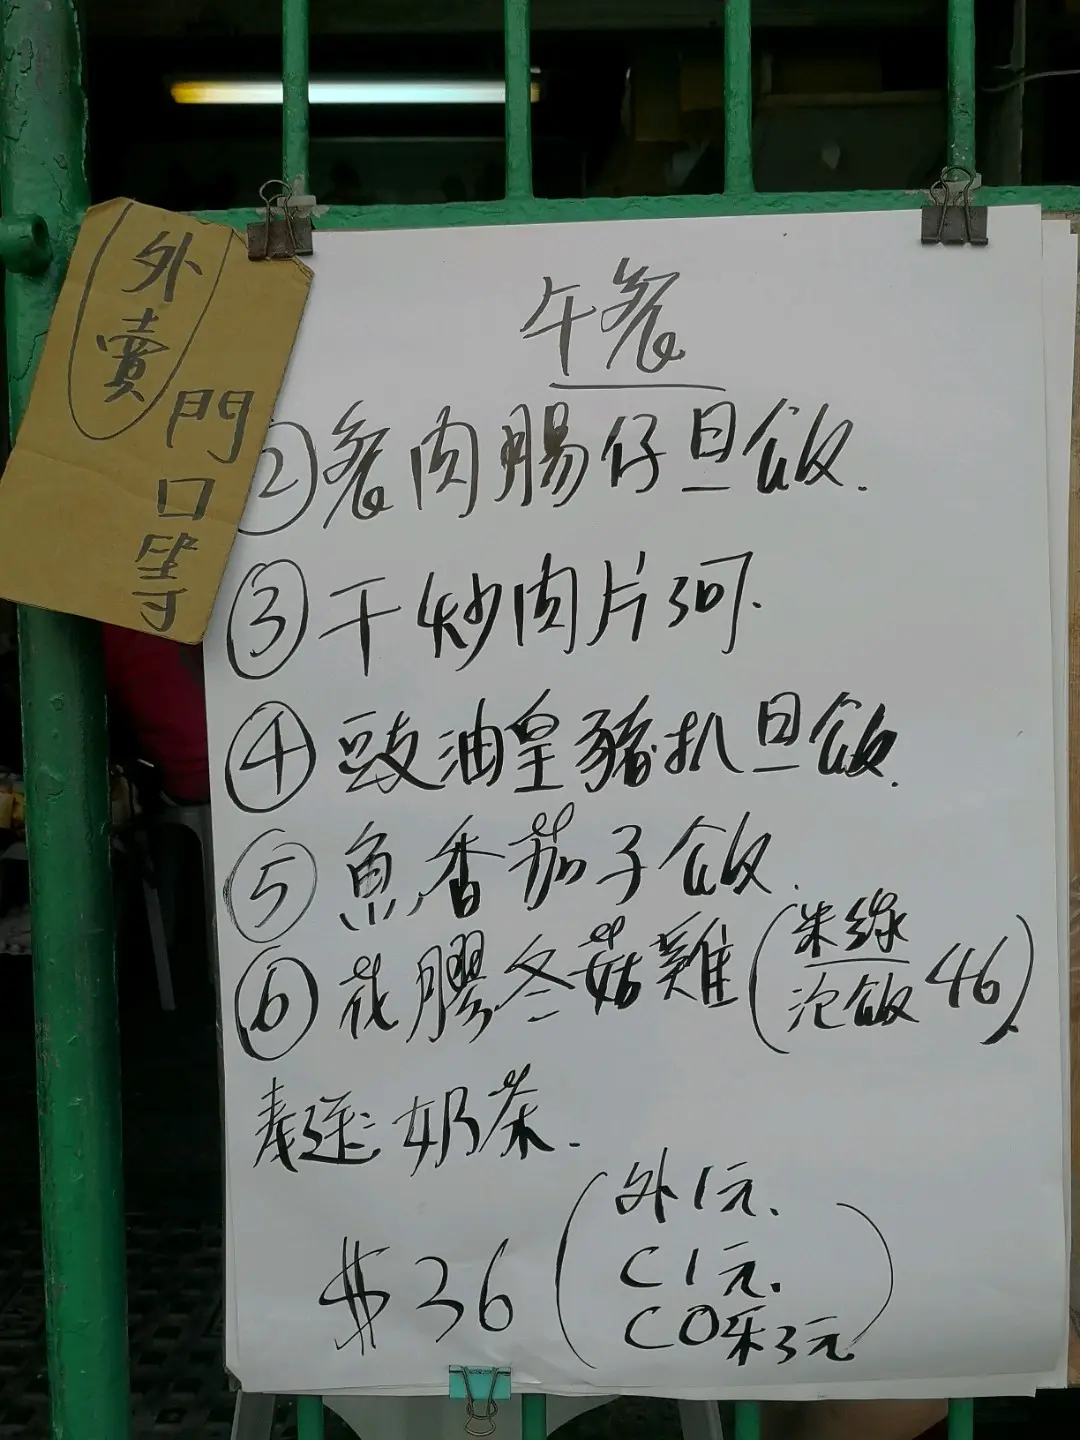 外賣
門口等
午餐
②餐肉腸仔旦飯.
③干炒肉片河.
④豉油皇豬扒旦飯.
⑤魚香茄子飯.
⑥花膠冬菇雞(米線
泡飯 46).
奶茶.
$36
(外1元.
C1元.
CO采3元)